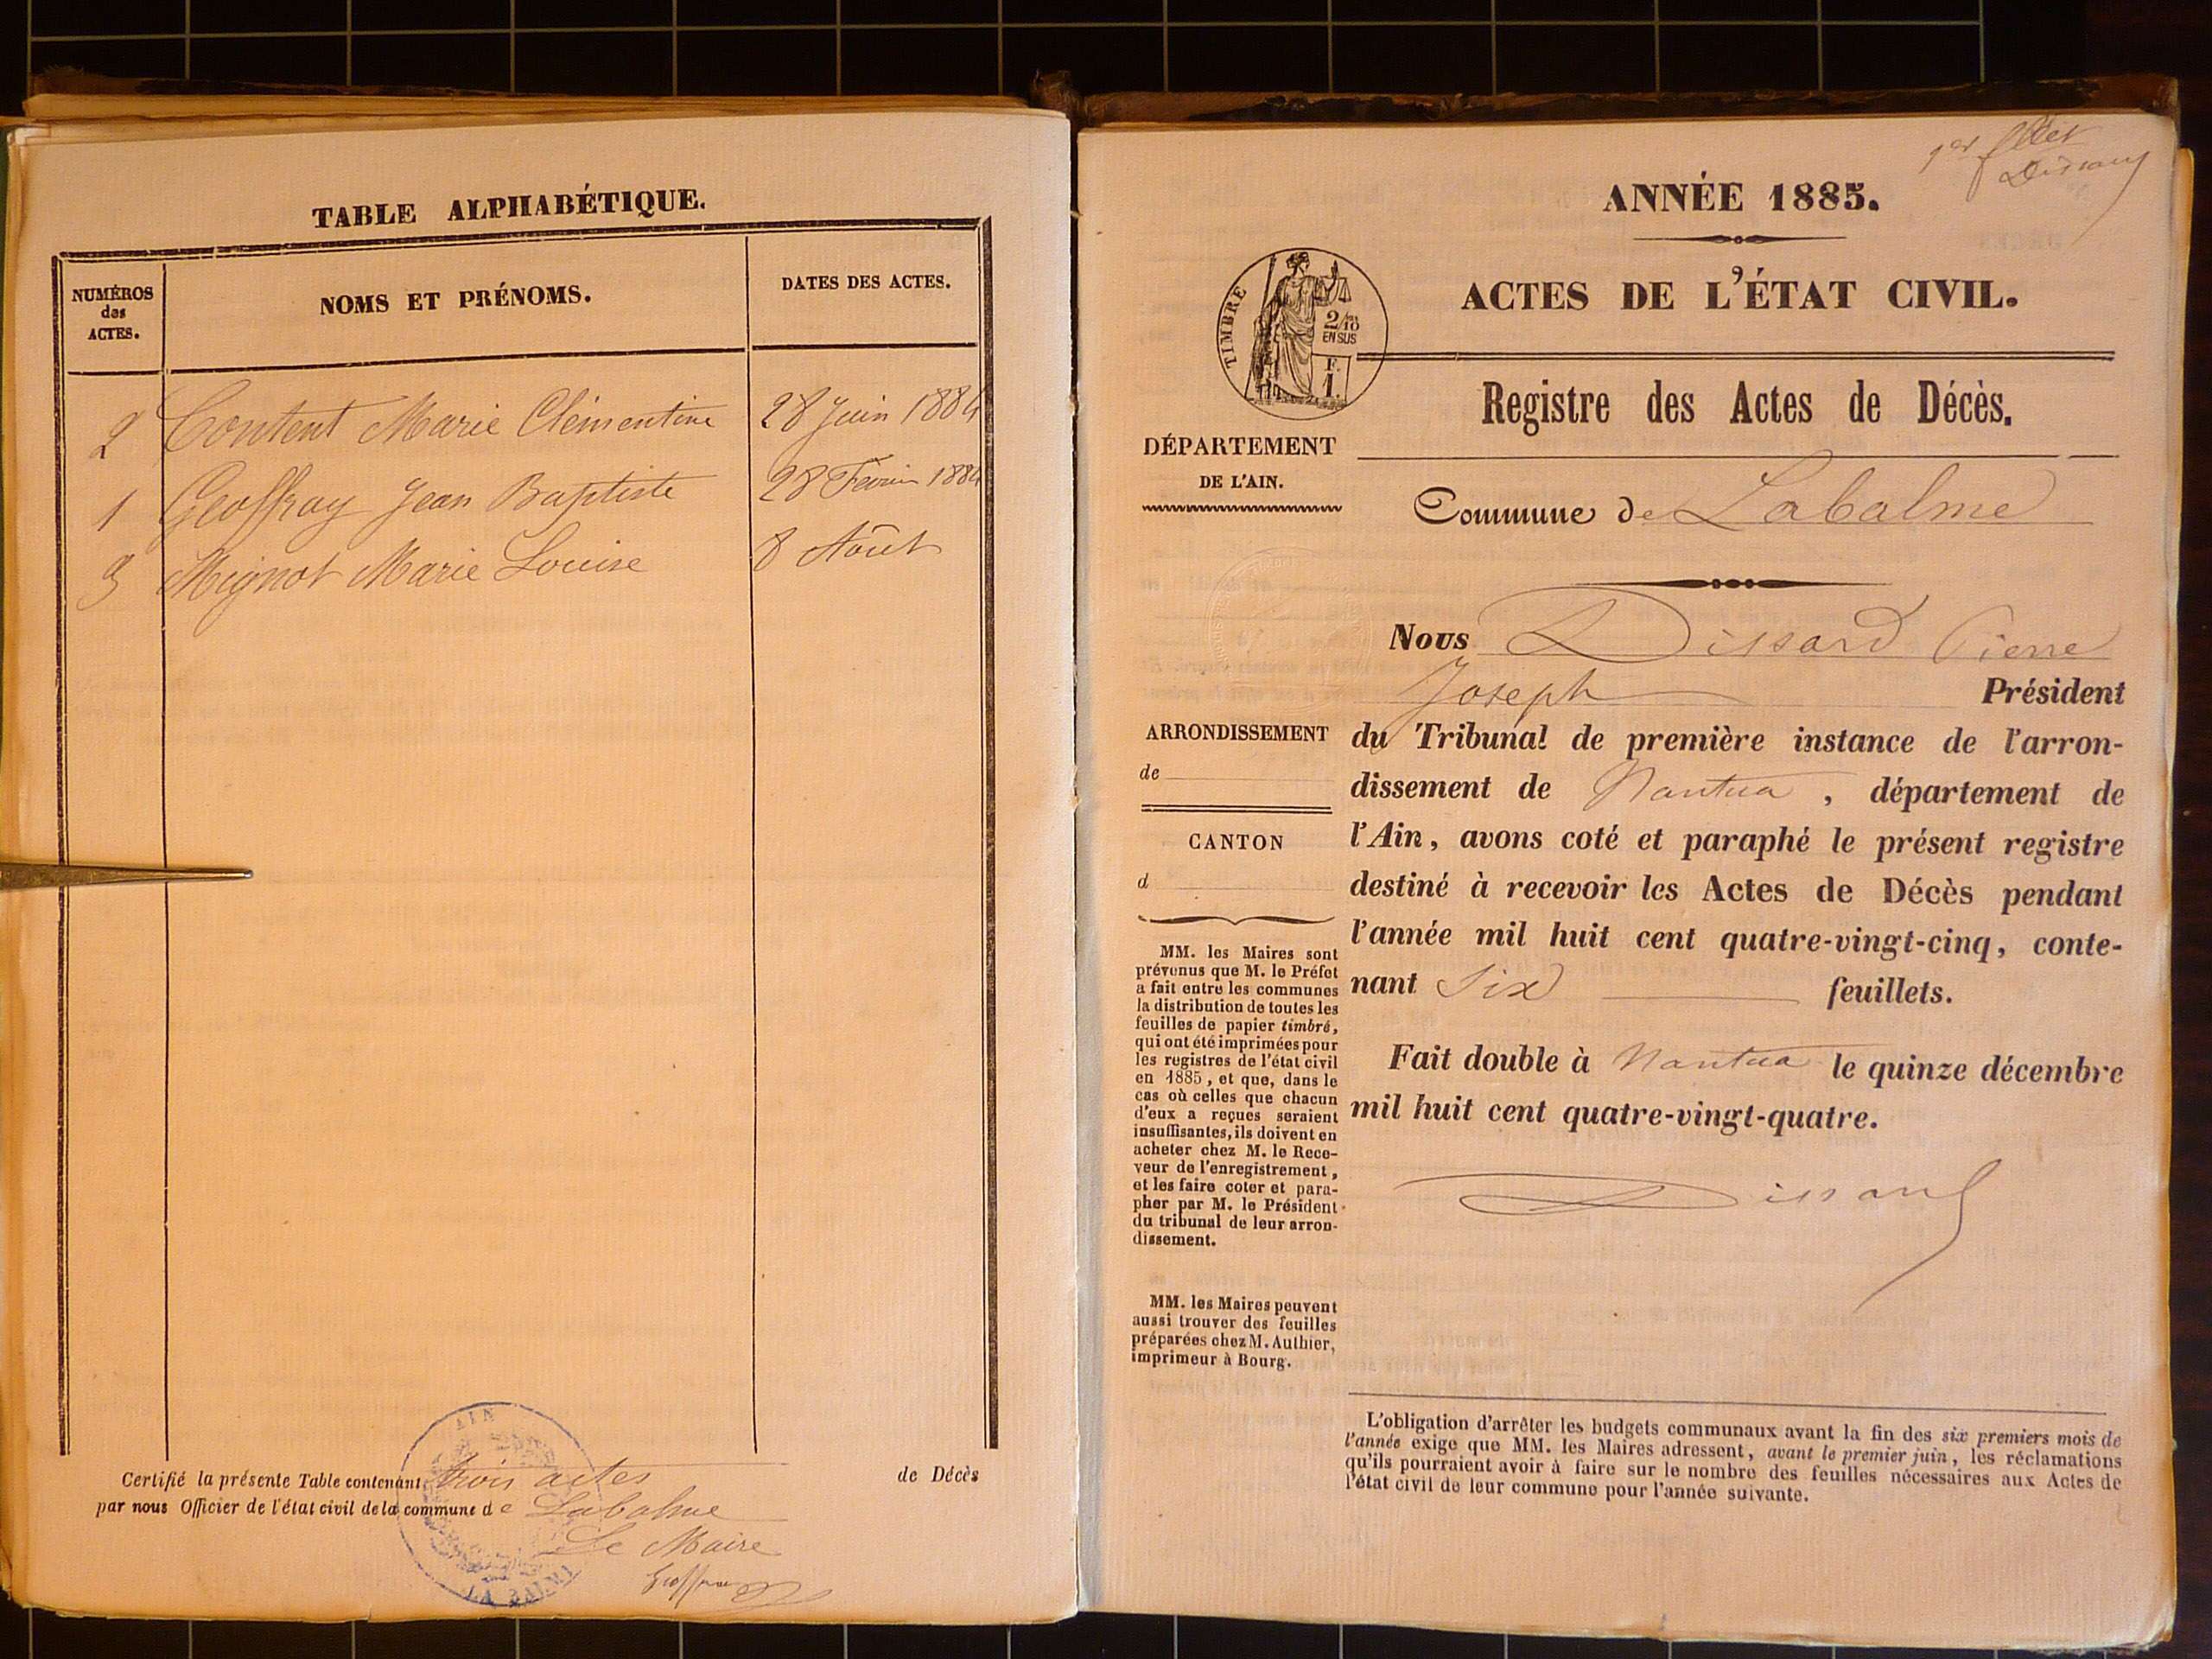 TABLE ALPHABÉTIQUE.
NUMÉROS
des
ACTES.
NOMS ET PRÉNOMS.
DATES DES ACTES.
2 Content Marie Clémentine 28 Juin 1884
1 Geoffray Jean Baptiste 28 Février 1884
3 Mignot Marie Louise 8 Août
Certifié la présente Table contenant trois actes de Décès
par nous Officier de l'état civil de la commune de Labalme
Le Maire
Geoffray
AIN
LA BALME
1er
Dissard
ANNÉE 1885.
ACTES DE L'ÉTAT CIVIL.
TIMBRE
2/10
EN SUS
F.
1.
Registre des Actes de Décès.
DÉPARTEMENT
DE L'AIN.
Commune de Labalme
Nous Dissard Pierre
Joseph Président
du Tribunal de première instance de l'arron-
dissement de Nantua, département de
l'Ain, avons coté et paraphé le présent registre
destiné à recevoir les Actes de Décès pendant
l'année mil huit cent quatre-vingt-cinq, conte-
nant Six feuillets.
Fait double à Nantua le quinze décembre
mil huit cent quatre-vingt-quatre.
Dissard
ARRONDISSEMENT
de
CANTON
d
MM. les Maires sont
prévenus que M. le Préfet
a fait entre les communes
la distribution de toutes les
feuilles de papier timbré,
qui ont été imprimées pour
les registres de l'état civil
en 1885, et que, dans le
cas où celles que chacun
d'eux a reçues seraient
insuffisantes, ils doivent en
acheter chez M. le Rece-
veur de l'enregistrement,
et les faire coter et para-
pher par M. le Président
du tribunal de leur arron-
dissement.
MM. les Maires peuvent
aussi trouver des feuilles
préparées chez M. Authier,
imprimeur à Bourg.
L'obligation d'arrêter les budgets communaux avant la fin des six premiers mois de
l'année exige que MM. les Maires adressent, avant le premier juin, les réclamations
qu'ils pourraient avoir à faire sur le nombre des feuilles nécessaires aux Actes de
l'état civil de leur commune pour l'année suivante.